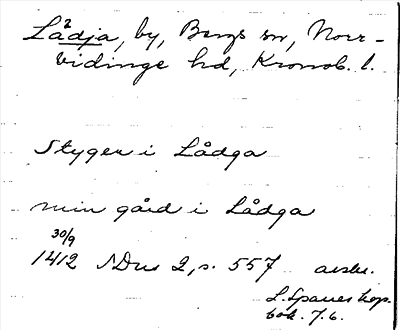 Lådja, by, Bergs sn, Norr-
vidinge hd, Kronob. l.
Styger i Lådga
min gård i Lådga
30/9
1412 SDns 2, s. 557 avskr.
L. Sparres kop.
bok. 7.6.